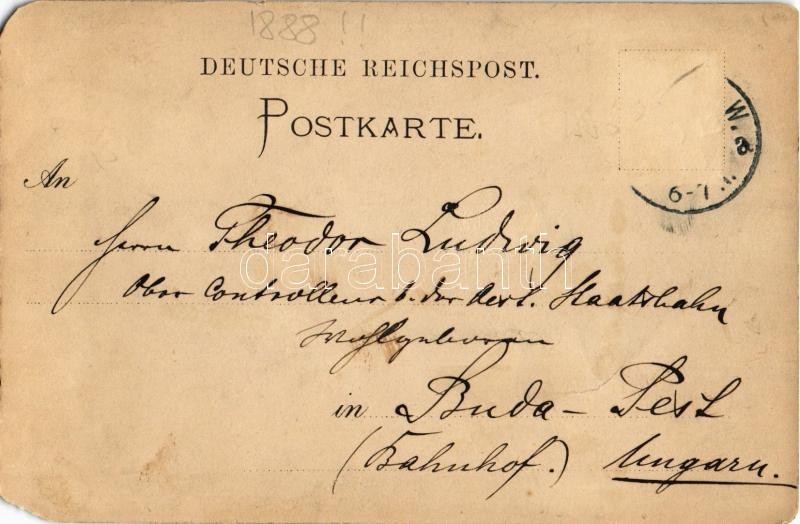 1888 !!
DEUTSCHE REICHSPOST.
POSTKARTE.
W.
a
6-7
An
Herrn Theodor Ludwig
darabanth
Ober Controlleur b. der Oest. Staatsbahn
Wohlgeboren
in Buda-Pest
(Bahnhof.) Ungarn.